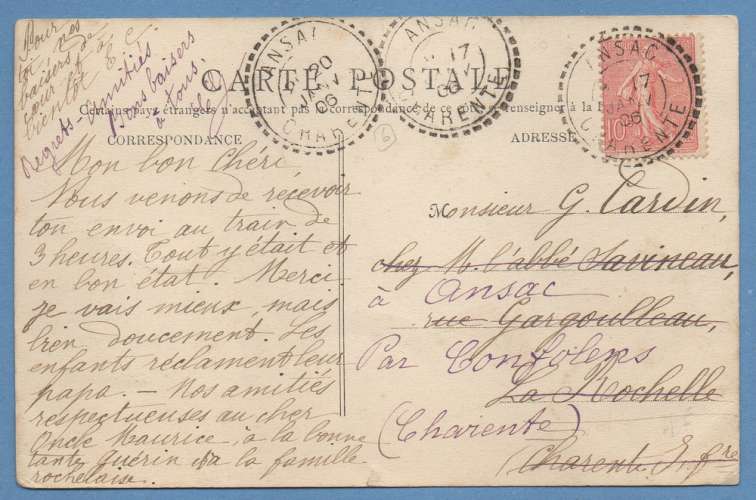 Pour nos
toi
baisers de
tour
bientôt
Regrets - amitiés
bons baisers
à tous.
ANSAC
20
JANV
06
CHARENTE
ANSAC
17
06
CHARENTE
ANSAC
17
JANV
06
CHARENTE
10
CARTE POSTALE
Certains pays étrangers n'acceptant pas la correspondance de ce côté, se renseigner à la
CORRESPONDANCE
ADRESSE
Mon bon Chéri,
Nous venons de recevoir
ton envoi au train de
3 heures. Tout y était et
en bon état. Merci.
Je vais mieux, mais
bien doucement. Les
enfants réclament leur
papa. — Nos amitiés
respectueuses au cher
Oncle Maurice, à la bonne
tante Guérin, à la famille
rochelaise.
Monsieur G. Cardin,
chez M. l'abbé Savineau,
à Ansac
rue Gargoulleau,
Par Confolens
La Rochelle
(Charente)
Charent. I. fre